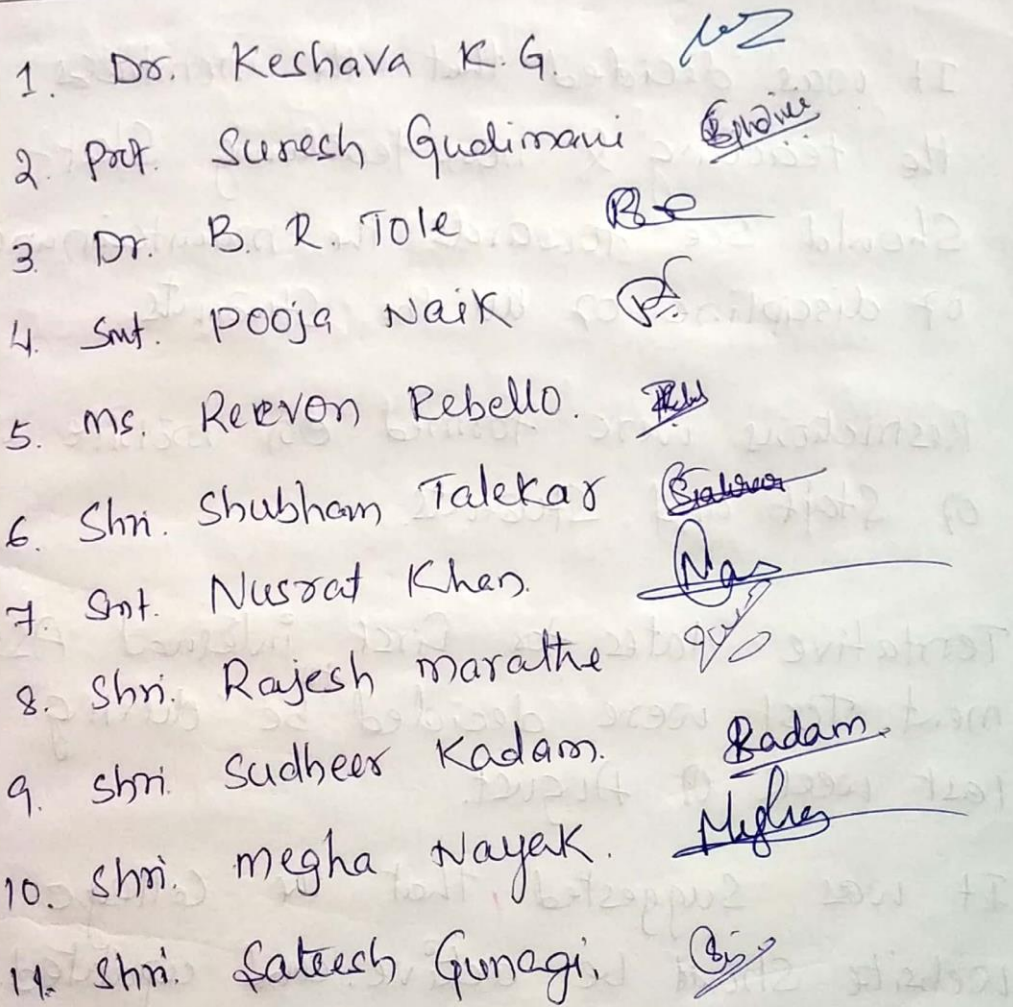 1. Dr. Keshava K.G.
2. Prof. Suresh Gudimani
3. Dr. B. R. Tole
4. Smt. Pooja Naik
5. Ms. Reevon Rebello.
6. Shri. Shubham Talekar
7. Smt. Nusrat Khan.
8. Shri. Rajesh Marathe
9. Shri. Sudheer Kadam. Kadam.
10. Shri. Megha Nayak. Megha
11. Shri. Sateesh Gunagi.